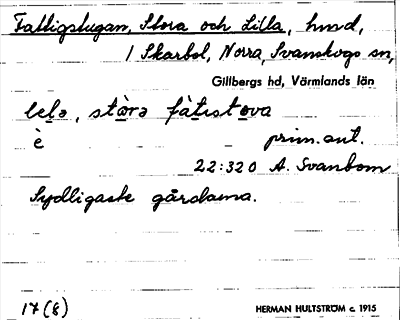 Fattigstugan, Stora och Lilla, hmd,
1 Skarbol, Norra, Svanskogs sn,
Gillbergs hd, Värmlands län
lelə, stàrə fàtɩstova
è prim. ant.
22:320 A. Svanbom
Sydligaste gårdarna.
17(8)
HERMAN HULTSTRÖM c. 1915